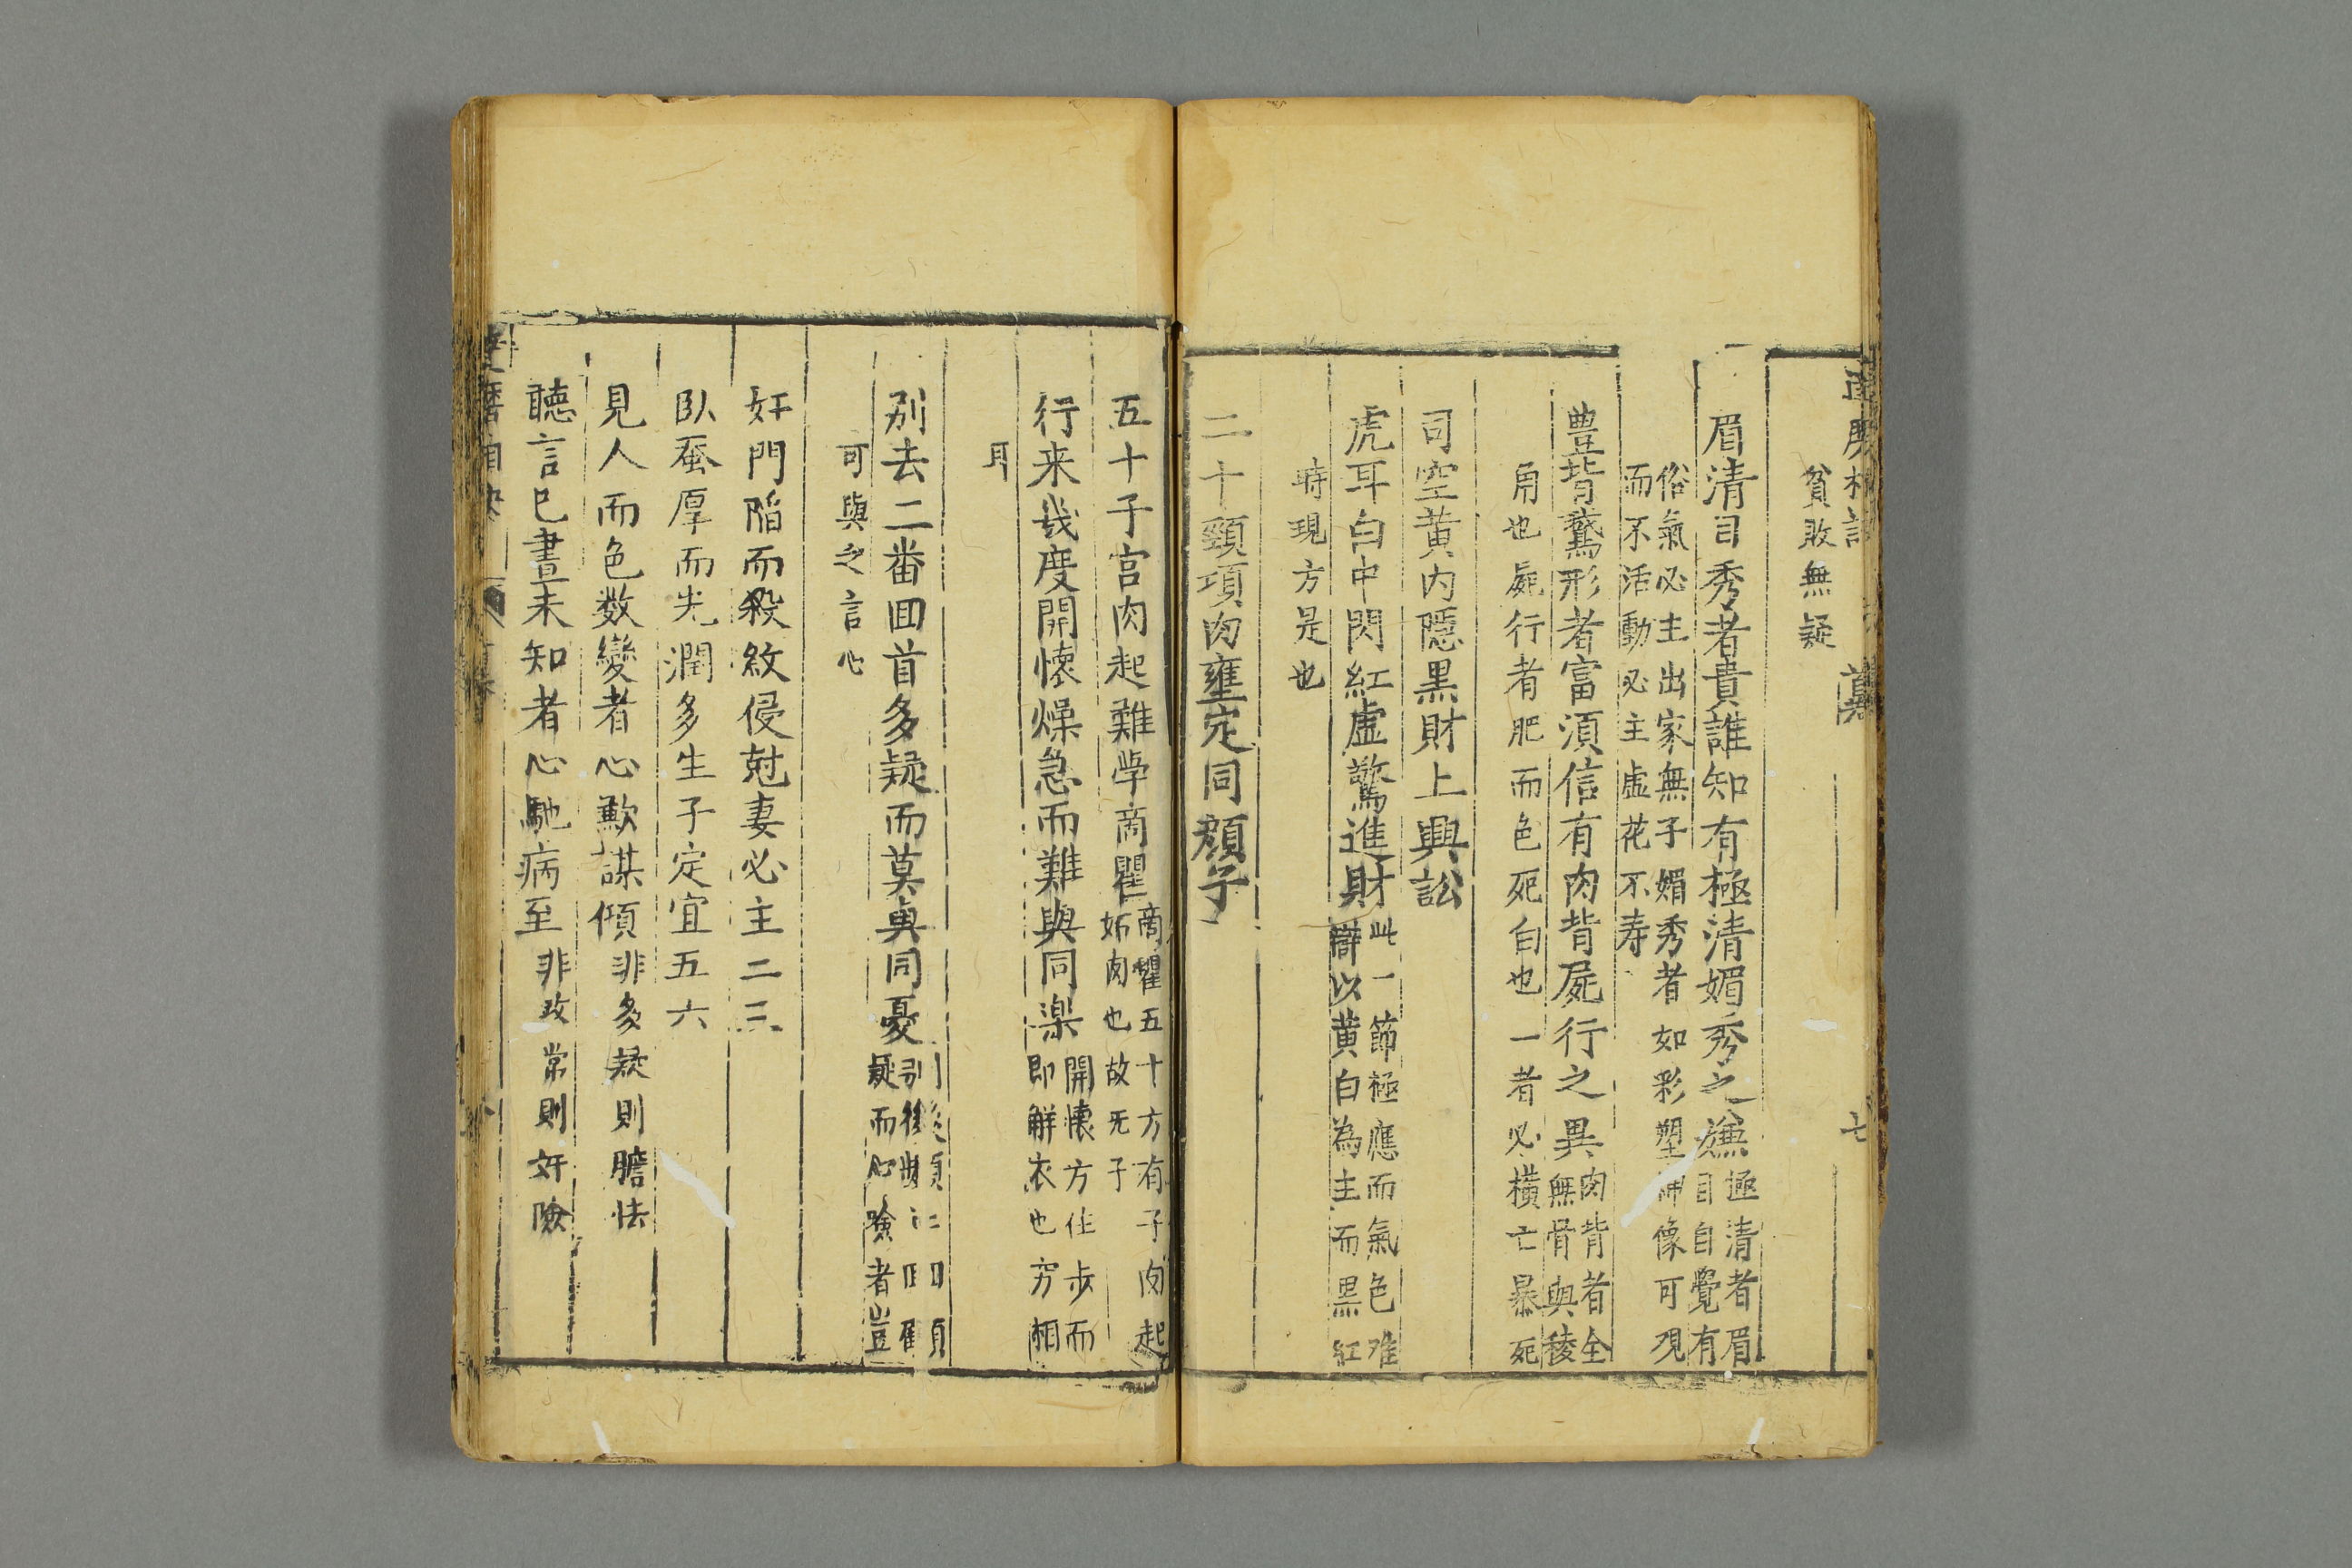 貧敗無疑
眉清目秀者貴誰知有極清媚秀之嫌
極清者眉
目自覺有
俗氣必主出家無子媚秀者如彩塑神像可現
而不活動必主虛花不寿
豊背鵞形者富須信有肉背屍行之異
肉背者全
無骨與稜
角也屍行者肥而色死白也一者必橫亡暴死
司空黄内隱黒財上興訟
虎耳白中閃紅虛驚進財
此一節極應而氣色难
辯以黄白為主而黒紅
時現方是也
二十頸項肉壅定同顔子
五十子宫肉起難学商瞿
商瞿五十方有子肉起
如肉也故旡子
行来幾度開懐燥急而難與同楽
開懐方住步而
即解衣也穷相
耳
别去二番囬首多疑而莫與同憂
疑而心險者豈
可與之言心
奸門陥而殺紋侵尅妻必主二三
臥蚕厚而光潤多生子定宜五六
見人而色数變者心歉謀傾
非多疑則膽怯
聽言已晝未知者心馳病至
非改常則奸險